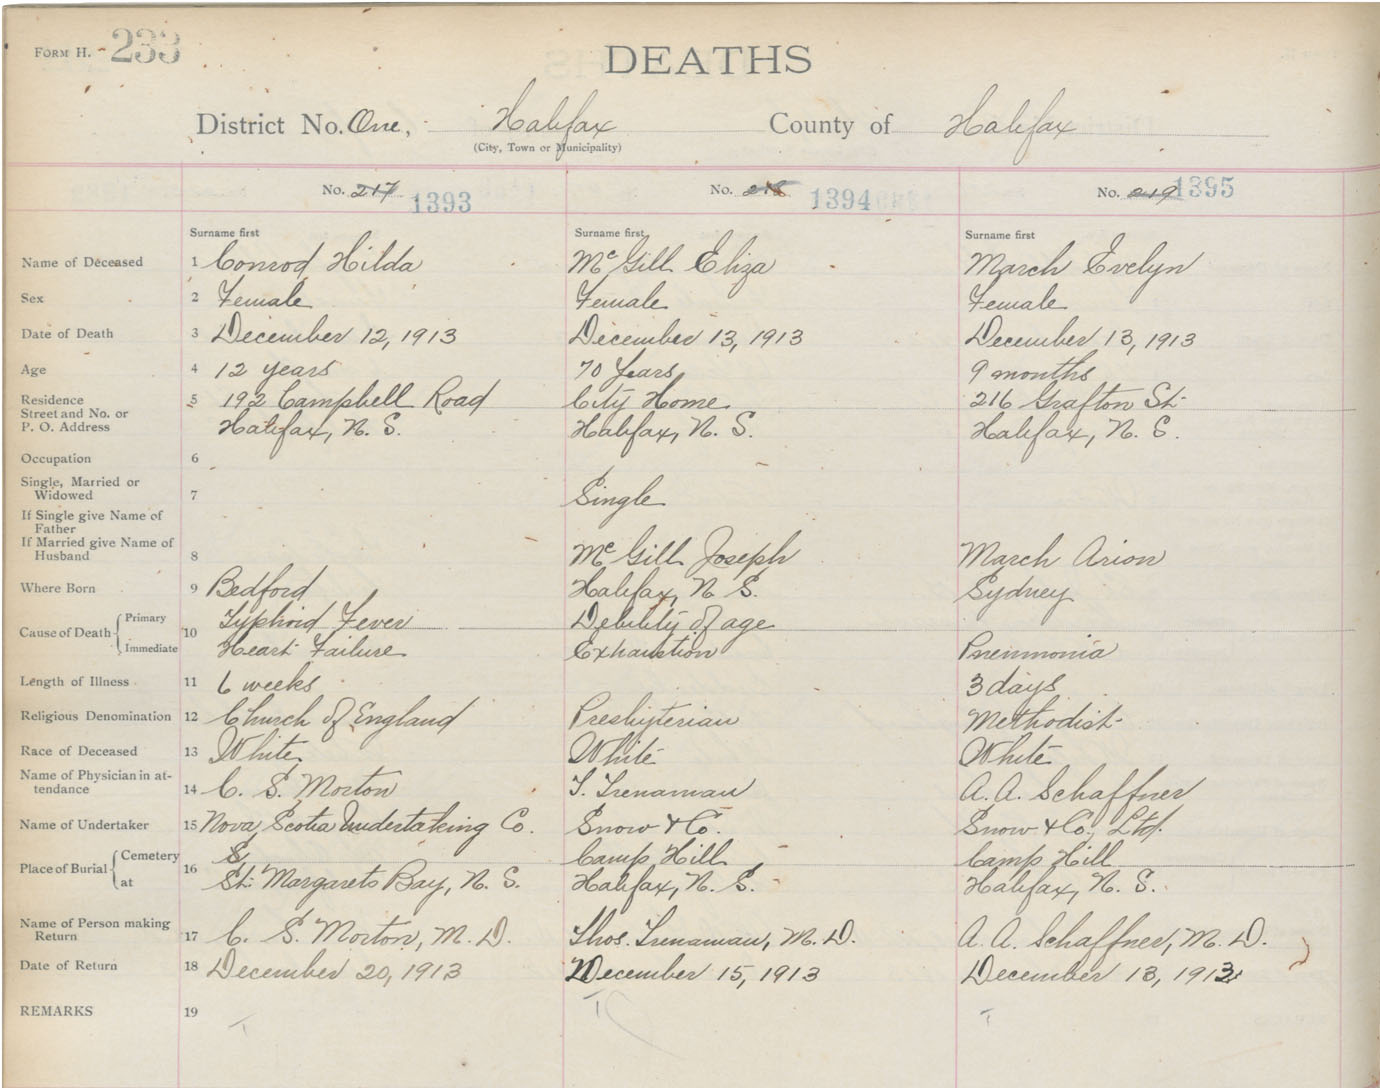 FORM H. 233
DEATHS
District No. One, Halifax County of Halifax
(City, Town or Municipality)
No. 217 1393 No. 218 1394 No. 219 1395
Surname first Surname first Surname first
Name of Deceased 1 Conrod Hilda McGill Eliza March Evelyn
Sex 2 Female Female Female
Date of Death 3 December 12, 1913 December 13, 1913 December 13, 1913
Age 4 12 years 70 Years 9 months
Residence 5 192 Campbell Road City Home 216 Grafton St.
Street and No. or
P. O. Address Halifax, N. S. Halifax, N. S. Halifax, N. S.
Occupation 6
Single, Married or
Widowed 7 Single
If Single give Name of
Father
If Married give Name of
Husband 8 McGill Joseph March Arion
Where Born 9 Bedford Halifax, N. S. Sydney
Cause of Death 10 Primary Typhoid Fever Debility of age
Immediate Heart Failure Exhaustion Pneumonia
Length of Illness 11 6 weeks 3 days
Religious Denomination 12 Church of England Presbyterian Methodist
Race of Deceased 13 White White White
Name of Physician in at-
tendance 14 C. S. Morton T. Trenaman A. A. Schaffner
Name of Undertaker 15 Nova Scotia Undertaking Co. Snow & Co. Snow & Co., Ltd.
Place of Burial 16 Cemetery S Camp Hill Camp Hill
at St. Margarets Bay, N. S. Halifax, N. S. Halifax, N. S.
Name of Person making
Return 17 C. S. Morton, M. D. Thos. Trenaman, M. D. A. A. Schaffner, M. D.
Date of Return 18 December 20, 1913 December 15, 1913 December 13, 1913
REMARKS 19